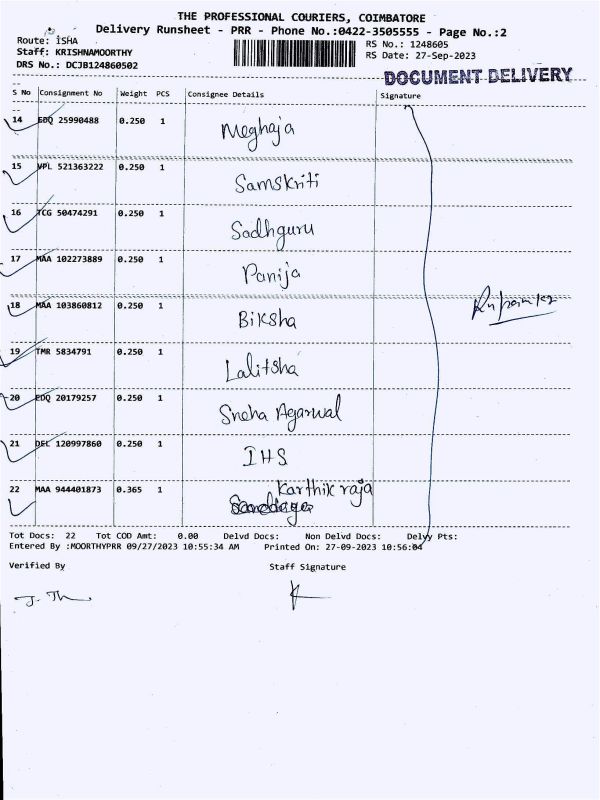 THE PROFESSIONAL COURIERS, COIMBATORE
Delivery Runsheet - PRR - Phone No.:0422-3505555 - Page No.:2
Route: ISHA
Staff: KRISHNAMOORTHY
DRS No.: DCJB124860502
RS No.: 1248605
RS Date: 27-Sep-2023
DOCUMENT DELIVERY
S No Consignment No Weight PCS Consignee Details Signature
14 EDQ 25990488 0.250 1 Meghaja
15 VPL 521363222 0.250 1 Samskriti
16 TCG 50474291 0.250 1 Sadhguru
17 MAA 102273889 0.250 1 Panija
18 MAA 103860812 0.250 1 Biksha
19 TMR 5834791 0.250 1 Lalitsha
20 EDQ 20179257 0.250 1 Sneha Agarwal
21 DEL 120997860 0.250 1 IHS
22 MAA 944401873 0.365 1 Karthik raja
Tot Docs: 22 Tot COD Amt: 0.00 Delvd Docs: Non Delvd Docs: Delvy Pts:
Entered By :MOORTHYPRR 09/27/2023 10:55:34 AM Printed On: 27-09-2023 10:56:04
Verified By Staff Signature